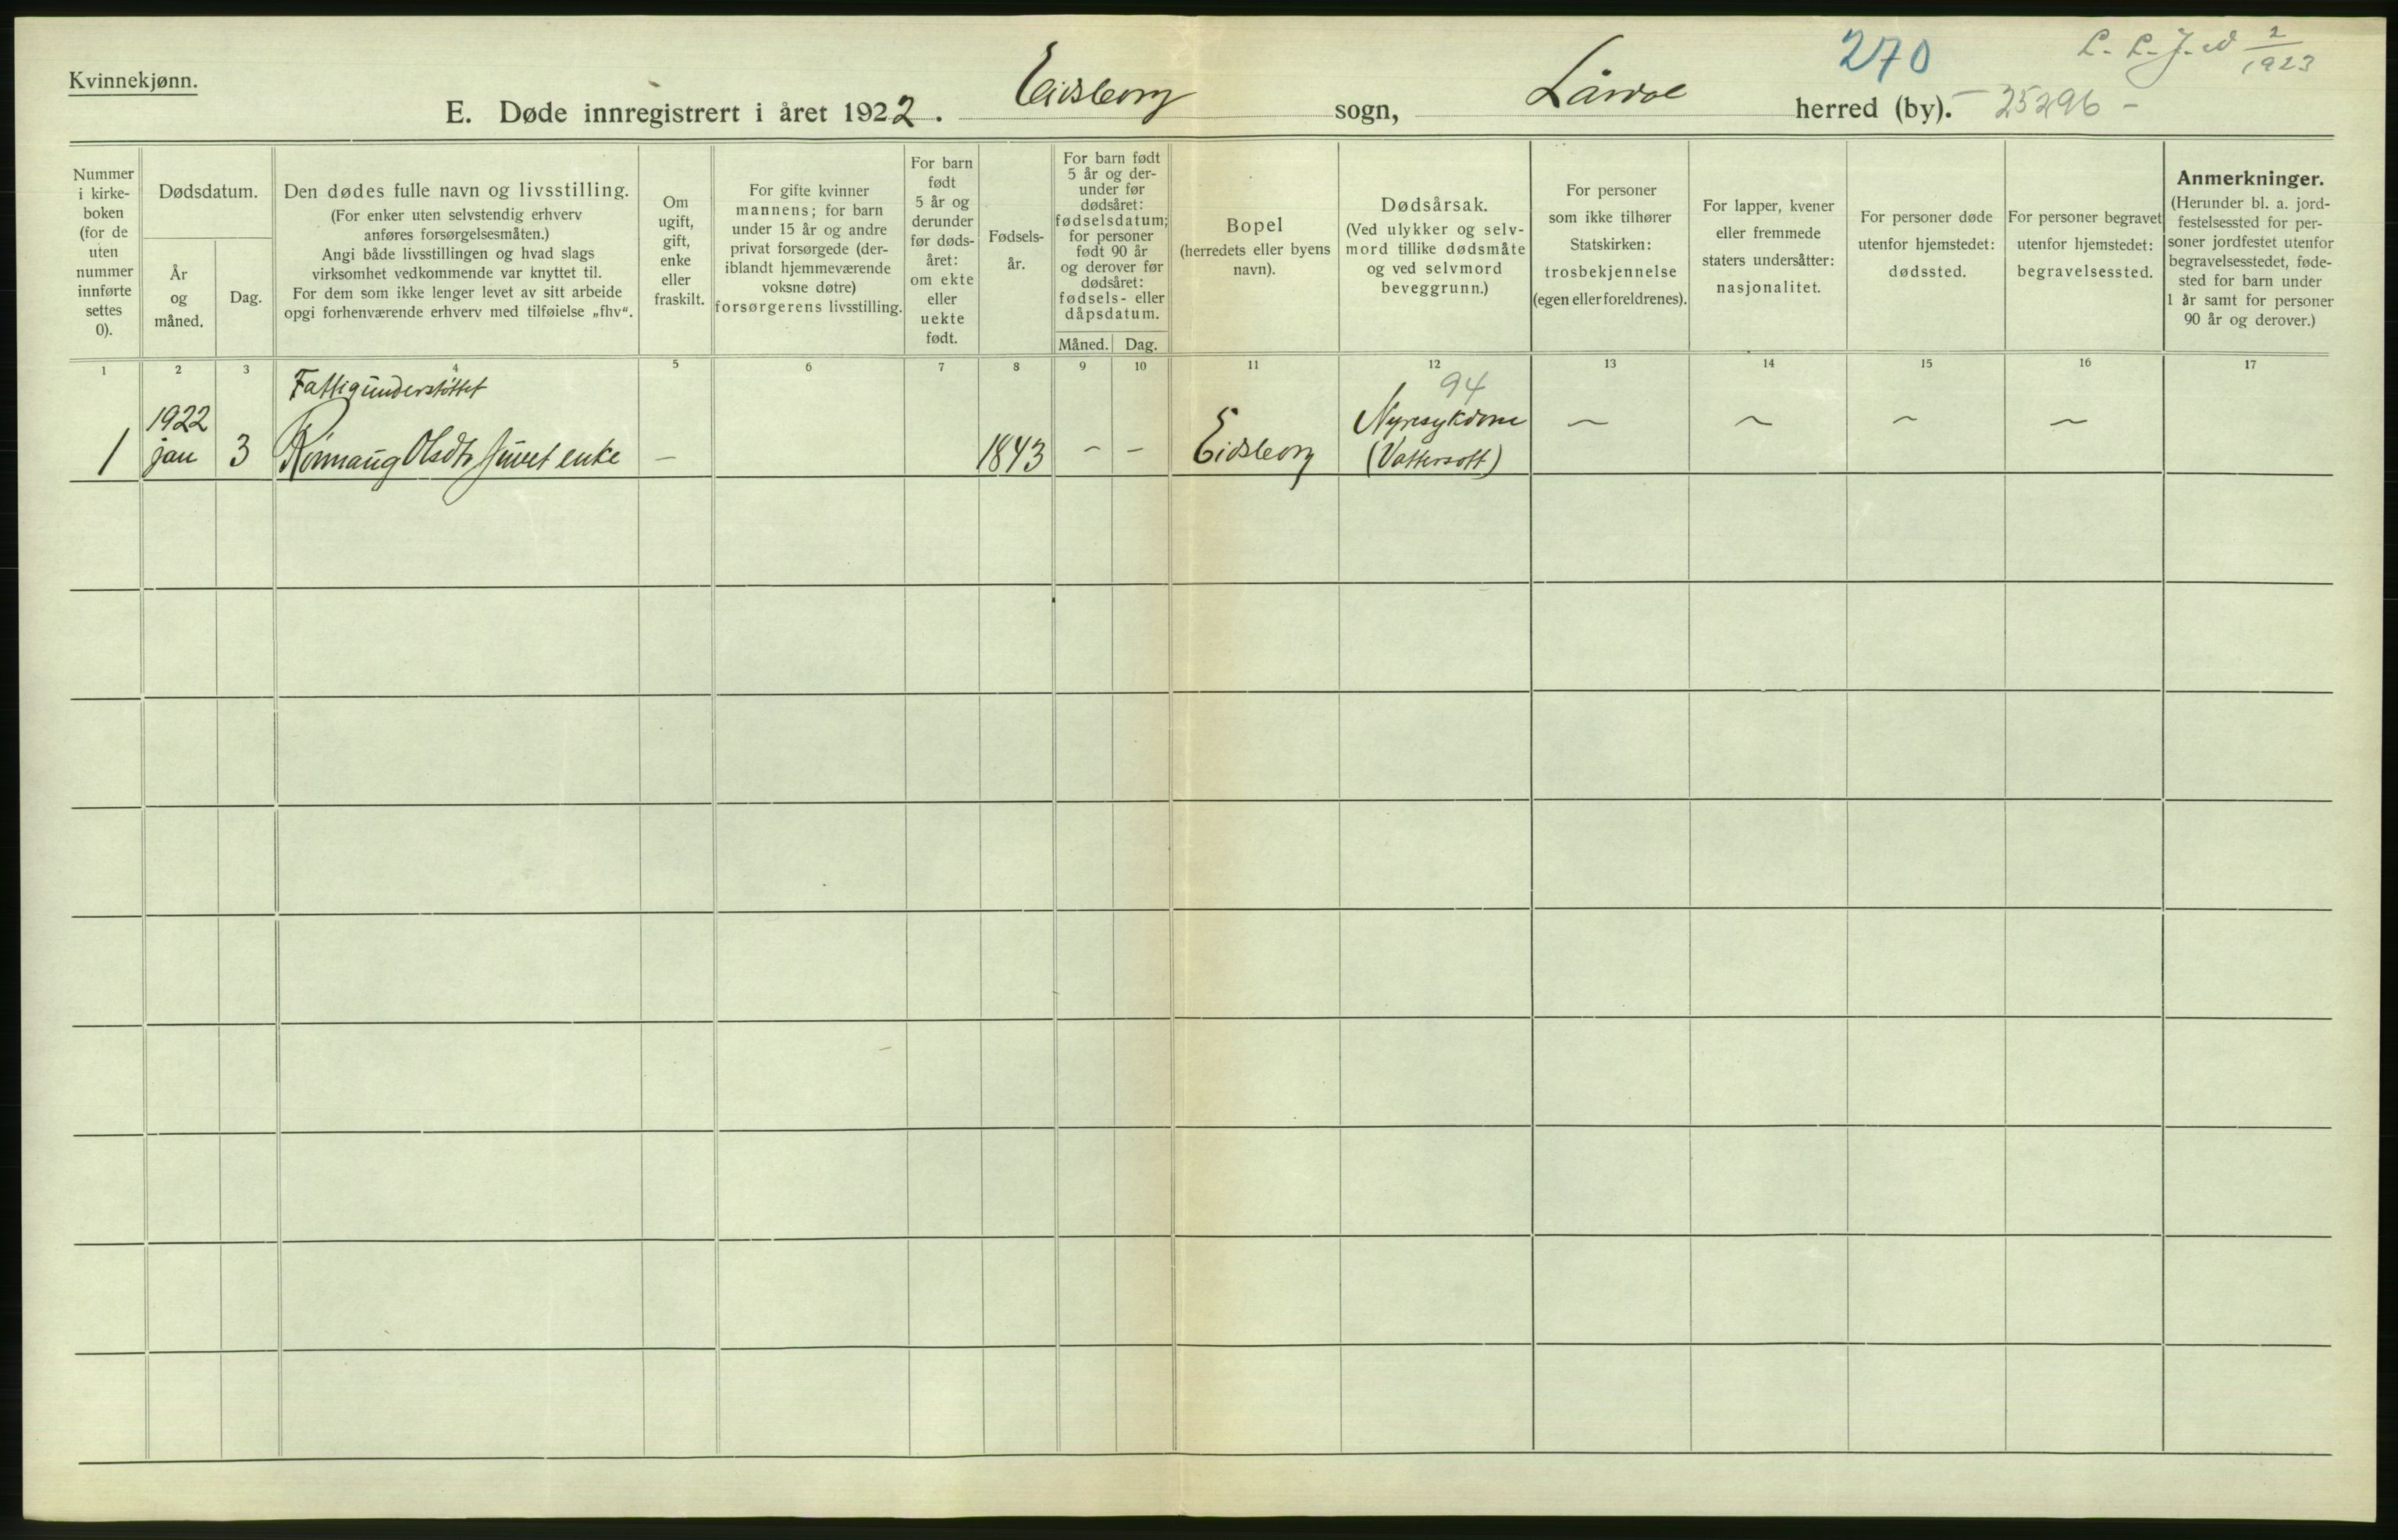 Kvinnekjønn.
270
2
1923
E. Døde innregistrert i året 1922. Eidsborg sogn, Lårdal herred (by). – 25296 –
Nummer i kirke- boken (for de uten nummer innførte settes 0).
Dødsdatum.
År og måned.
Dag.
Den dødes fulle navn og livsstilling.
(For enker uten selvstendig erhverv
anføres forsørgelsesmåten.)
Angi både livsstillingen og hvad slags
virksomhet vedkommende var knyttet til.
For dem som ikke lenger levet av sitt arbeide
opgi forhenværende erhverv med tilføielse „fhv“.
Om
ugift,
gift,
enke
eller
fraskilt.
For gifte kvinner
mannens; for barn
under 15 år og andre
privat forsørgede (der-
iblandt hjemmeværende
voksne døtre)
forsørgerens livsstilling.
For barn
født
5 år og
derunder
før døds-
året:
om ekte
eller
uekte
født.
Fødsels-
år.
For barn født
5 år og der-
under før
dødsåret:
fødselsdatum;
for personer
født 90 år
og derover før
dødsåret:
fødsels- eller
dåpsdatum.
Måned. Dag.
Bopel
(herredets eller byens
navn).
Dødsårsak.
(Ved ulykker og selv-
mord tillike dødsmåte
og ved selvmord
beveggrunn.)
For personer
som ikke tilhører
Statskirken:
trosbekjennelse
(egen eller foreldrenes).
For lapper, kvener
eller fremmede
staters undersåtter:
nasjonalitet.
For personer døde
utenfor hjemstedet:
dødssted.
For personer begravet
utenfor hjemstedet:
begravelsessted.
Anmerkninger.
(Herunder bl. a. jord-
festelsessted for per-
soner jordfestet utenfor
begravelsesstedet, føde-
sted for barn under
1 år samt for personer
90 år og derover.)
1 2 3 4 5 6 7 8 9 10 11 12 13 14 15 16 17
Fattigunderstøttet
94
1922
Nyresykdom
1 jan 3 Rönnaug Olsdtr enke – 1843 – – Eidsborg (Vattersott) – – – –